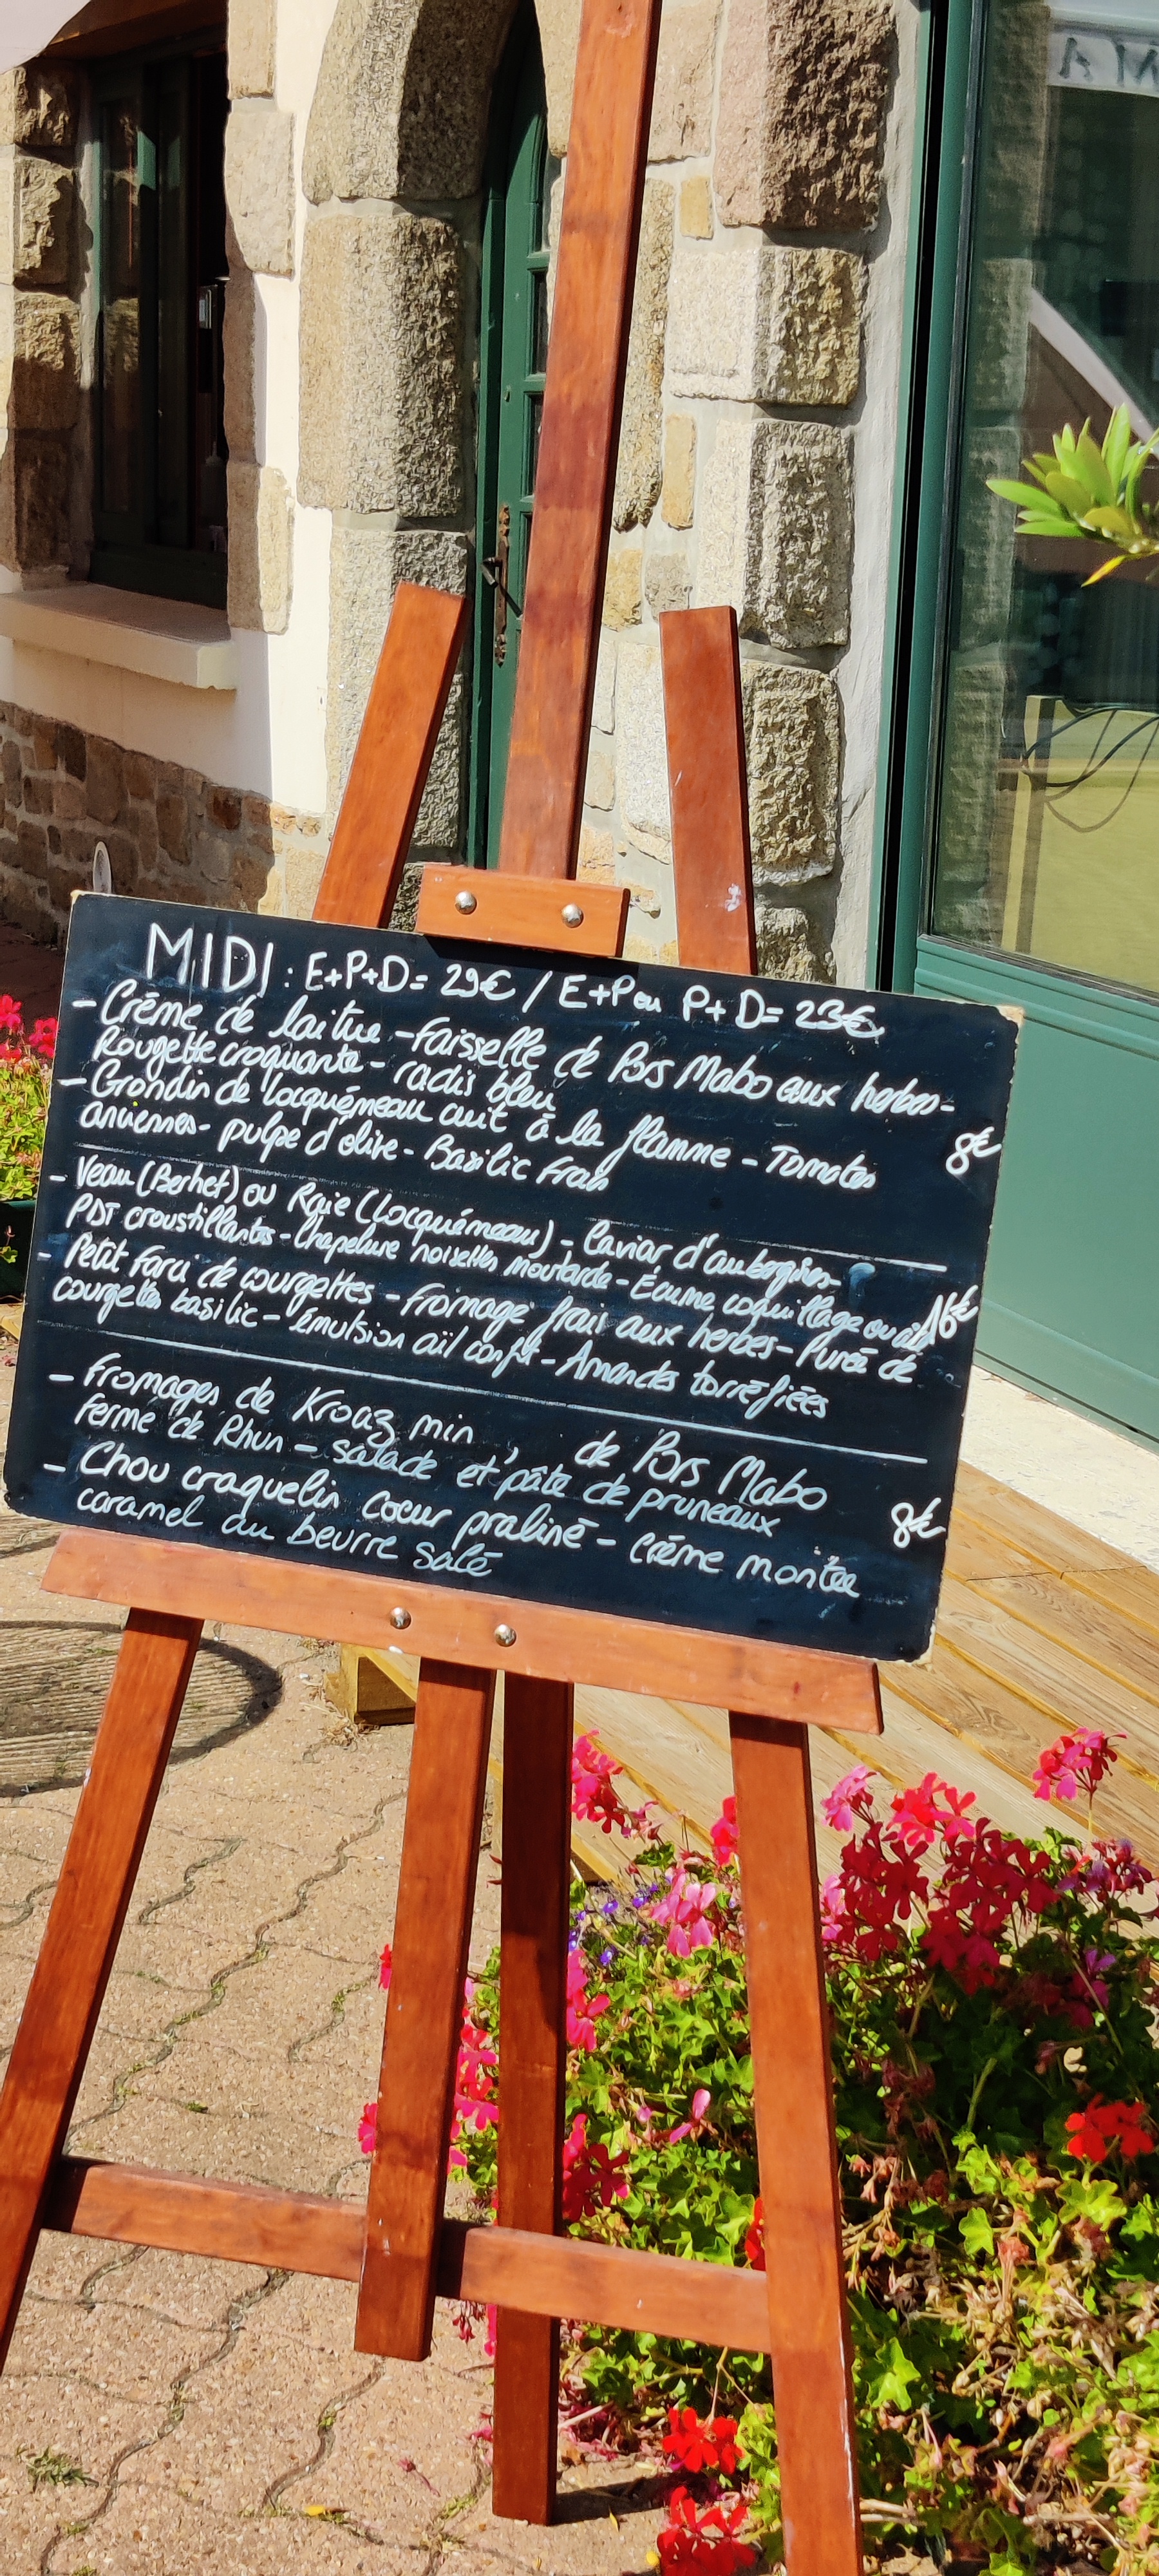 MA
MIDI : E+P+D= 29€ / E+P ou P+D= 23€
- Crème de laitue - Faisselle de Pors Mabo aux herbes -
Rougette croquante - radis bleu
- Grondin de Locquémeau cuit à la flamme - Tomates
anciennes - pulpe d'olive - Basilic Frais
8€
- Veau (Berhet) ou Raie (Locquémeau) - Caviar d'aubergines -
PDT croustillantes - Chapelure noisettes moutarde - Écume coquillage ou ail
16€
- Petit Farci de courgettes - Fromage frais aux herbes - Purée de
courgettes basilic - émulsion aïl confit - Amandes torréfiées
- Fromages de Kroaz min , de Pors Mabo
Ferme de Rhun - salade et pâte de pruneaux
8€
- Chou craquelin coeur praliné - Crème montée
caramel au beurre salé